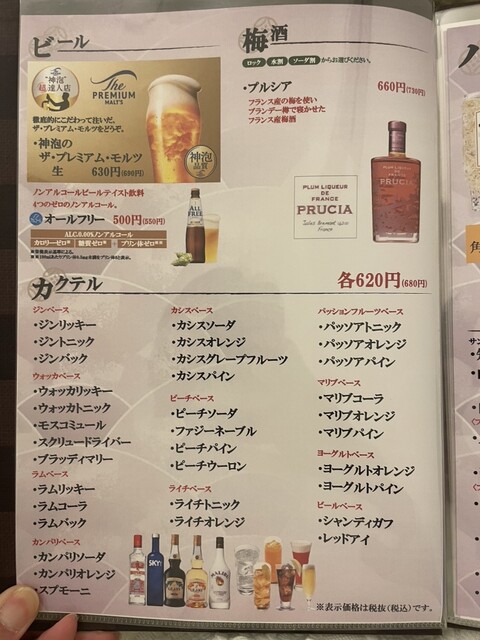 ビール
"神泡"
超達人店
The
PREMIUM
MALT'S
徹底的にこだわって注いだ、
ザ・プレミアム・モルツをどうぞ。
・神泡の
ザ・プレミアム・モルツ
生 630円(690円)
神泡
品質
ノンアルコールビールテイスト飲料
4つのゼロのノンアルコール。
オールフリー 500円(550円)
ALC.0.00%ノンアルコール
カロリーゼロ※ 糖質ゼロ※ プリン体ゼロ※※
ALL
FREE
梅酒
ロック 水割 ソーダ割 からお選びください。
・プルシア 660円(730円)
フランス産の梅を使い
ブランデー樽で寝かせた
フランス産梅酒
PLUM LIQUEUR
DE
FRANCE
PRUCIA
France
PRUCIA
カクテル 各620円(680円)
ジンベース
・ジンリッキー
・ジントニック
・ジンバック
ウォッカベース
・ウォッカリッキー
・ウォッカトニック
・モスコミュール
・スクリュードライバー
・ブラッディマリー
ラムベース
・ラムリッキー
・ラムコーラ
・ラムバック
カンパリベース
・カンパリソーダ
・カンパリオレンジ
・スプモーニ
カシスベース
・カシスソーダ
・カシスオレンジ
・カシスグレープフルーツ
・カシスパイン
ピーチベース
・ピーチソーダ
・ファジーネーブル
・ピーチパイン
・ピーチウーロン
ライチベース
・ライチトニック
・ライチオレンジ
パッションフルーツベース
・パッソアトニック
・パッソアオレンジ
・パッソアパイン
マリブベース
・マリブコーラ
・マリブオレンジ
・マリブパイン
ヨーグルトベース
・ヨーグルトオレンジ
・ヨーグルトパイン
ビールベース
・シャンディガフ
・レッドアイ
SKYY
MALIBU
※表示価格は税抜(税込)です。